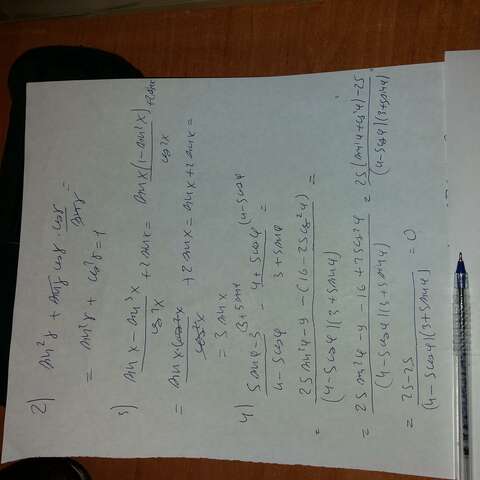 2) sin²γ + sinγ cosγ · cosγ/sinγ =
= sin²γ + cos²γ = 1
3) (sin x − sin³x)/cos²x + 2 sin x = sin x(1 − sin²x)/cos²x + 2 sin x
= sin x cos²x/cos²x + 2 sin x = sin x + 2 sin x =
= 3 sin x
4) (5 sin φ − 3)/(4 − 5 cos φ) − (4 + 5 cos φ)/(3 + 5 sin φ) =
= (25 sin²φ − 9 − (16 − 25 cos²φ))/((4 − 5 cos φ)(3 + 5 sin φ)) =
= (25 sin²φ − 9 − 16 + 25 cos²φ)/((4 − 5 cos φ)(3 + 5 sin φ)) = (25(sin²φ + cos²φ) − 25)/((4 − 5 cos φ)(3 + 5 sin φ))
= (25 − 25)/((4 − 5 cos φ)(3 + 5 sin φ)) = 0